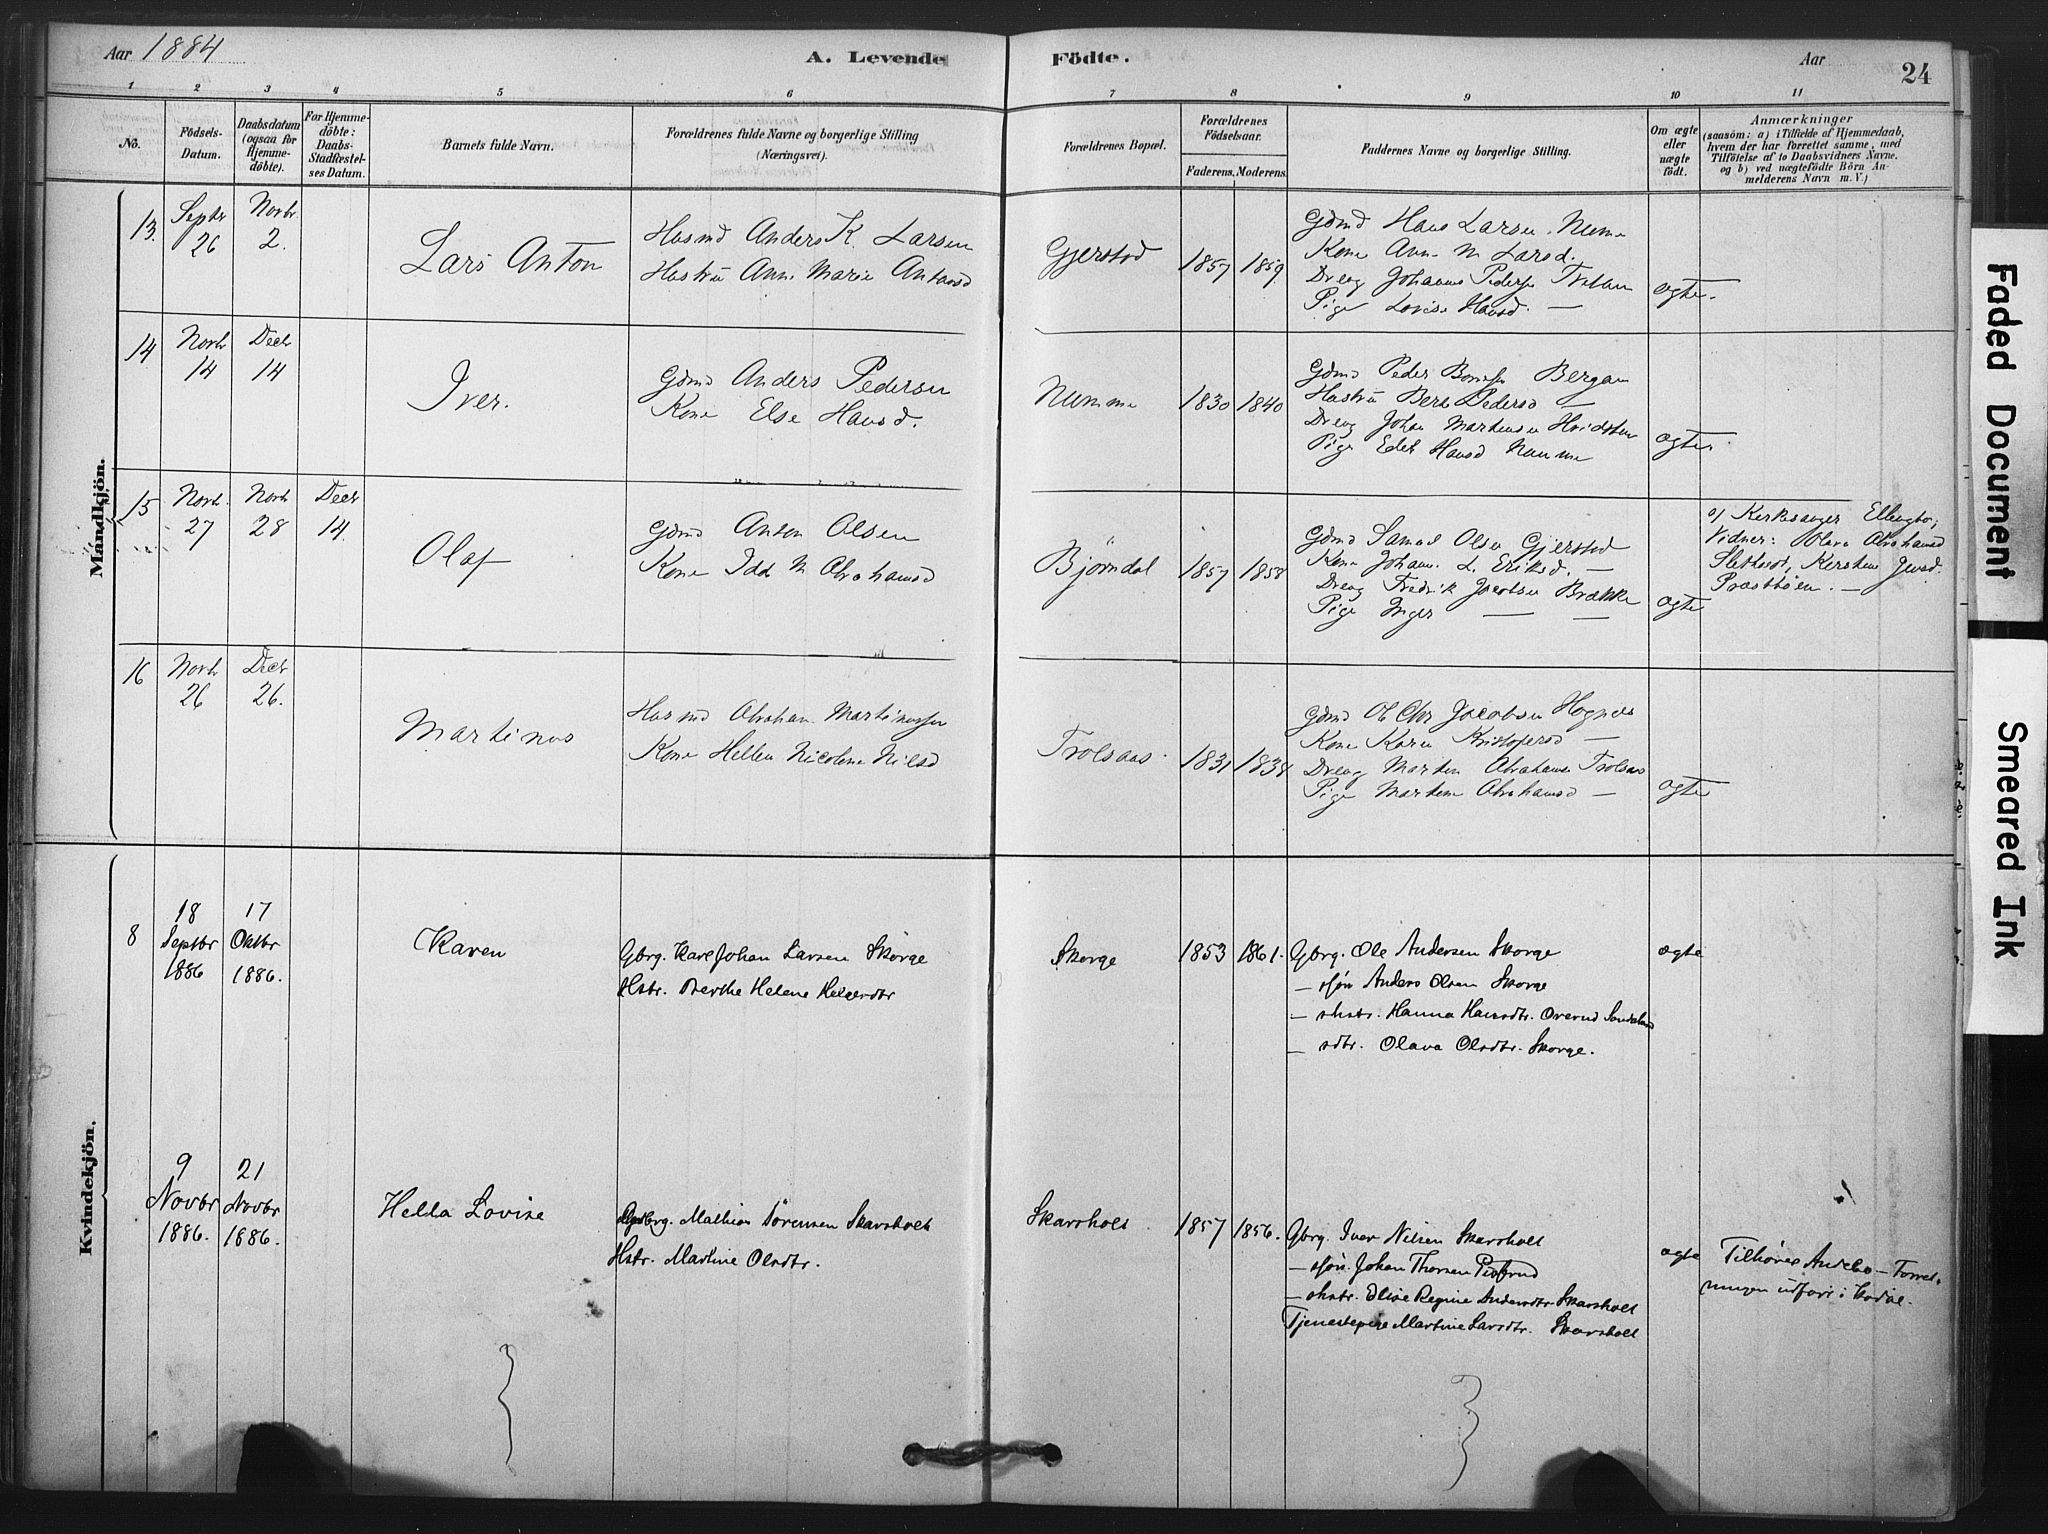 Aar 1884
A. Levende Födte.
Aar
24
1 2 3 4 5 6 7 8 9 10 11
No.
Födsels-Datum.
Daabsdatum (ogsaa for Hjemmedöbte).
For Hjemmedöbte: Daabs-Stadfæstelses Datum.
Barnets fulde Navn.
Forældrenes fulde Navne og borgerlige Stilling (Næringsvei).
Forældrenes Bopæl.
Forældrenes Födselsaar.
Faderens. Moderens.
Faddernes Navne og borgerlige Stilling.
Om ægte eller uægte födt.
Anmærkninger
(saasom: a) i Tilfælde af Hjemmedaab, hvem der har forrettet samme, med Tilföielse af to Daabsvidners Navne. og b) ved uægtefödte Börn Anmelderens Navn m. V.)
Mandkjön.
13. Septbr 26 Novbr 2.
Lars Anton
Husmd Anders K. Larsen
Hustru Anne Marie Antonsd
Gjerstad 1857 1859
Gdmd Hans Larsen Numme
Kone Anne M Larsd.
Dreng Johannes Peders
Pige Lovise Hansd. —
ægte.
14 Novb 14 Decb 14
Iver.
Gdmd Anders Pedersen
Kone Else Hansd.
Numme 1830 1840
Gdmd Peder Bergan
Hustru Berte Pedersd —
Dreng Johan Martinsen Hvidsten
Pige Edel Hansd Numme
ægte
15 Novb. 27 Novb 28 Decb 14.
Olaf
Gdmd Anton Olsen
Kone Ida M Abrahamsd
Bjørndal 1857 1858
Gdmd Samuel Olsen Gjerstad
Kone Johanne L. Eriksd. —
Dreng Fredrik Jacobsen Brække
Pige Inger — —
ægte
a) Kirkesanger
Vidner: Olava Abrahamsd
Præsttøen. —
16 Novb 26 Decb 26.
Martinus
Husmd Abraham Martinussen
Kone Hellen Nicoline Nilsd
Trolsaas 1831 1838
Gdmd Ol Chr Jacobsen Hognes
Kone Karen Kristofersd —
Dreng Martin Abrahamsen Trolsaas
Pige Martine Abrahamsd —
ægte
Kvindekjön.
8 18 Septbr 1886 17 Oktbr 1886.
Karen
Gbrg. Karl Johan Larsen Skorge
Hstr. Berthe Helene Helgesdtr
Skorge 1853 1861.
Gbrg. Ole Andersen Skorge
— sön Anders Olsen Skorge
— Hanna Hansdtr. Overud
— dtr. Olava Olsdtr. Skorge.
ægte
9 Novbr 1886. 21 Novbr 1886.
Helda Lovise
Mathias Sörensen Skarsholt
Hstr. Martine Olsdtr.
Skarsholt 1857 1856.
Gbrg. Iver Nilsen Skarsholt
— sön. Johan Thorsen
— Elise Regine Andersdtr Skarsholt
Tjenestepige Martine Larsdtr. Skarsholt
ægte
Tilhörer Andebo — Forretningen udfört i Kodal.
Faded Document
Smeared Ink